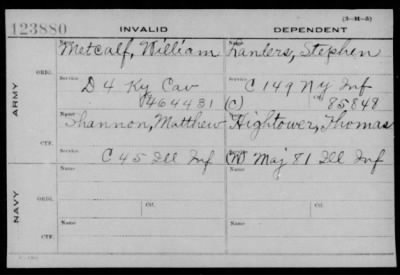 (3-M-5)
123880 INVALID DEPENDENT
ARMY
NAVY
ORIG. Name Metcalf, William Name Landers, Stephen
Service D 4 Ky Cav Service C 149 N.Y. Inf
464431 (C) 85849
CTF. Name Shannon, Matthew Name Hightower, Thomas
Service C 45 Ill Inf Service (W) Maj 81 Ill Inf
ORIG. Name Ctf. Name Ctf.
Service Service
CTF. Name Name
Service Service